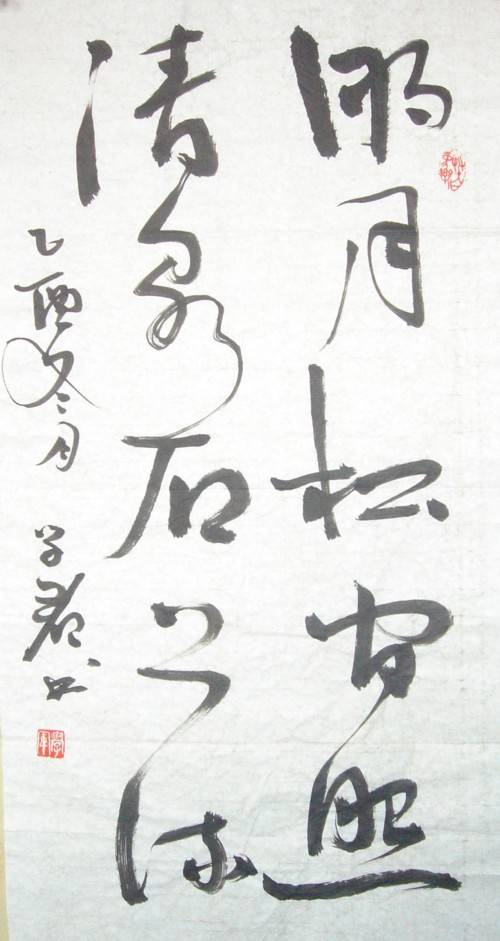 明月松间照
清泉石上流
乙酉冬月 学 书